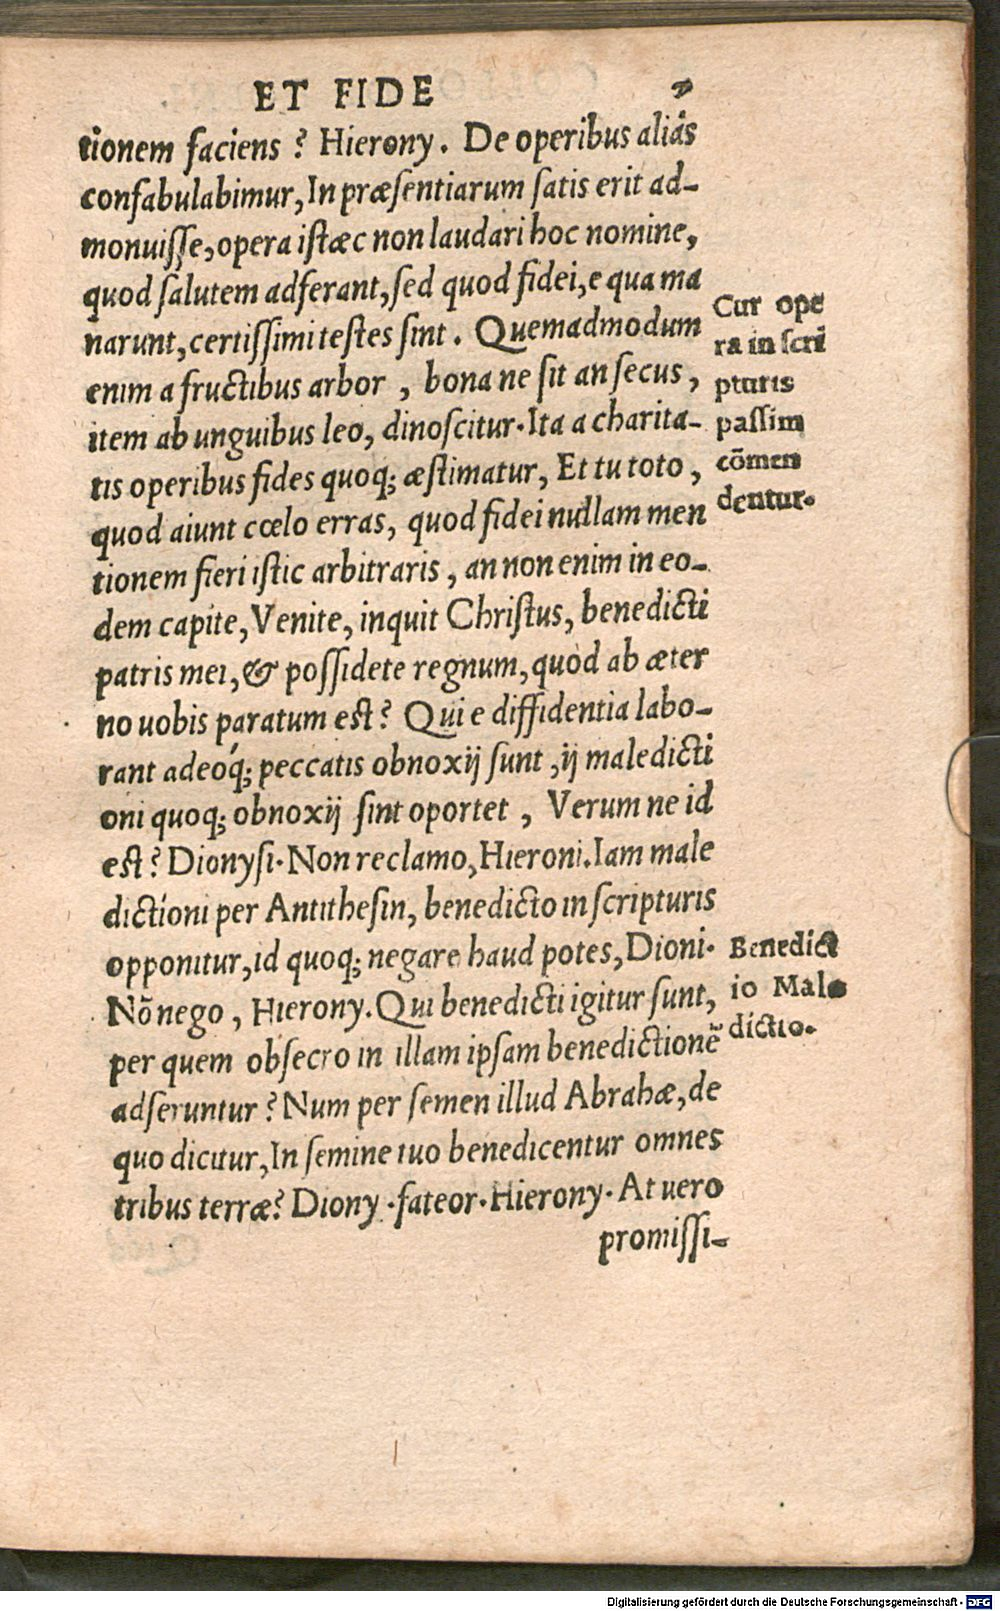 ET FIDE
tionem faciens? Hierony. De operibus aliás
confabulabimur, In præsentiarum satis erit ad-
monuisse, opera istæc non laudari hoc nomine,
quod salutem adferant, sed quod fidei, e qua ma
narunt, certissimi testes sint. Quemadmodum
enim a fructibus arbor, bona ne sit an secus,
item ab unguibus leo, dinoscitur. Ita a charita-
tis operibus fides quoq; æstimatur, Et tu toto,
quod aiunt cœlo erras, quod fidei nullam men
tionem fieri istic arbitraris, an non enim in eo-
dem capite, Venite, inquit Christus, benedicti
patris mei, & possidete regnum, quod ab æter
no uobis paratum est? Qui e diffidentia labo-
rant adeoq́; peccatis obnoxij sunt, ij maledicti
oni quoq; obnoxij sint oportet, Verum ne id
est? Dionysi. Non reclamo, Hieroni. Iam male
dictioni per Antithesin, benedicto in scripturis
opponitur, id quoq; negare haud potes, Dioni.
Nõ nego, Hierony. Qui benedicti igitur sunt,
per quem obsecro in illam ipsam benedictionẽ
adseruntur? Num per semen illud Abrahæ, de
quo dicitur, In semine tuo benedicentur omnes
tribus terræ? Diony. fateor. Hierony. At uero
promissi-
Cur ope
ra in scri
pturis
passim
cõmen
dentur.
Benedict
io Male
dictio.
Digitalisierung gefördert durch die Deutsche Forschungsgemeinschaft - DFG